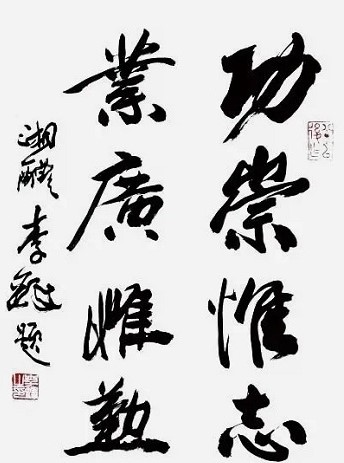 功崇惟志
業廣惟勤
湘醴李鐸題